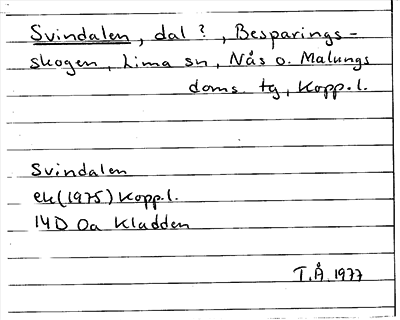 Svindalen, dal?, Besparings-
skogen, Lima sn, Nås o. Malungs
doms. tg, Kopp.l.
Svindalen
ek(1975) Kopp.l.
14D 0a Kladden
T.Å. 1977